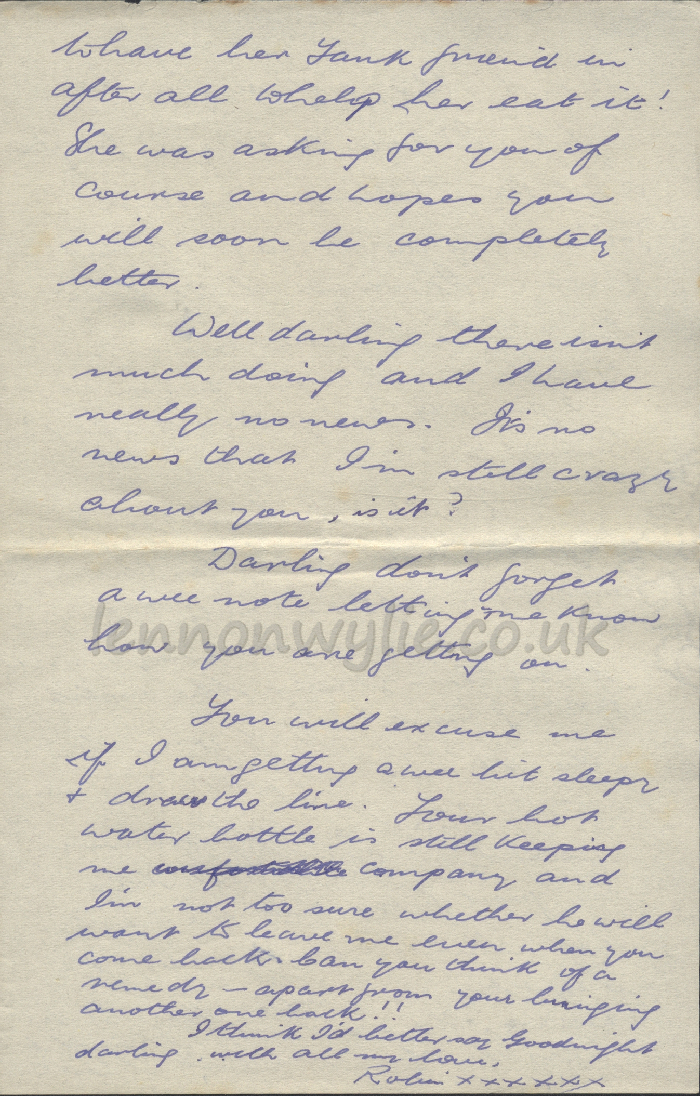 to have her Yank friend in
after all to help her eat it!
She was asking for you of
course and hopes you
will soon be completely
better.
Well darling there isn't
much doing and I have
really no news. It's no
news that I'm still crazy
about you, is it?
Darling don't forget
a wee note letting me know
how you are getting on.
lennonwylie.co.uk
You will excuse me
if I am getting a wee bit sleepy
+ draw the line. Your hot
water bottle is still keeping
me company and
I'm not too sure whether he will
want to leave me even when you
come back. Can you think of a
remedy - apart from your bringing
another one back!!
I think I'd better say Goodnight
darling. with all my love,
Robin xxxxxxx